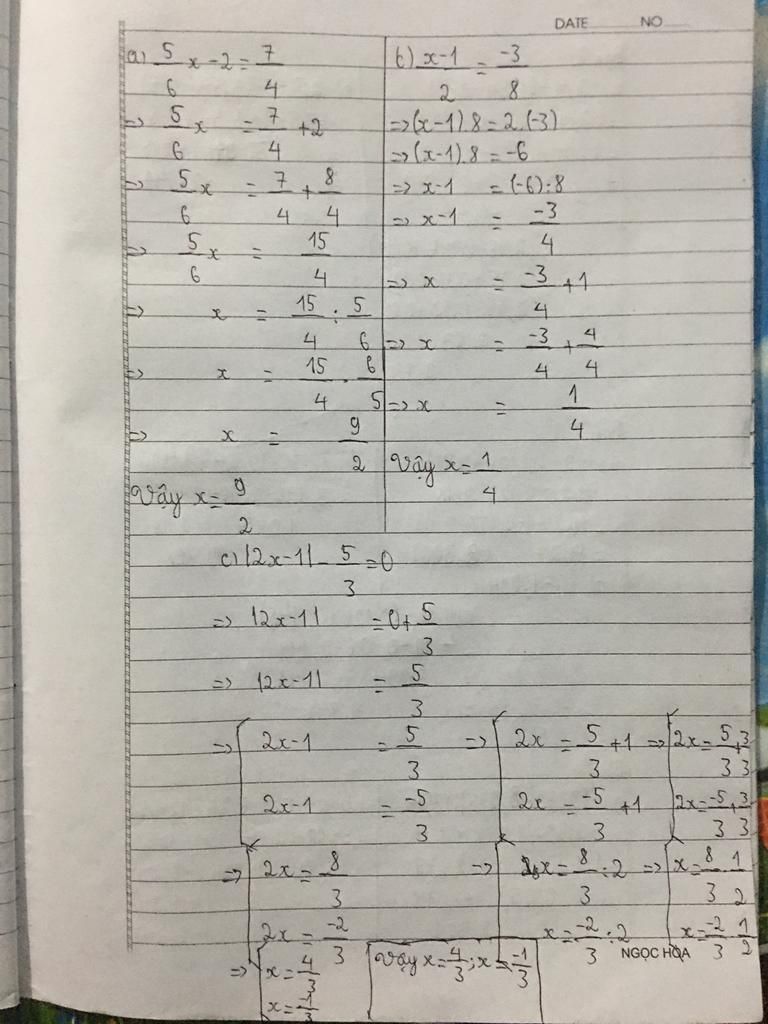 DATE NO
a) 5/6 x - 2 = 7/4
=> 5/6 x = 7/4 + 2
=> 5/6 x = 7/4 + 8/4
=> 5/6 x = 15/4
=> x = 15/4 : 5/6
=> x = 15/4 . 6/5
=> x = 9/2
Vậy x = 9/2
b) x-1/2 = -3/8
=> (x-1).8 = 2.(-3)
=> (x-1).8 = -6
=> x-1 = (-6):8
=> x-1 = -3/4
=> x = -3/4 + 1
=> x = -3/4 + 4/4
=> x = 1/4
Vậy x = 1/4
c) |2x-1| - 5/3 = 0
=> |2x-1| = 0 + 5/3
=> |2x-1| = 5/3
=> [ 2x-1 = 5/3 => [ 2x = 5/3 + 1 => [ 2x = 5/3 + 3/3
2x-1 = -5/3 2x = -5/3 + 1 2x = -5/3 + 3/3
=> [ 2x = 8/3 => [ x = 8/3 : 2 => [ x = 8/3 . 1/2
2x = -2/3 x = -2/3 : 2 x = -2/3 . 1/2
NGỌC HÒA
=> [ x = 4/3 Vậy x = 4/3; x = -1/3
x = -1/3